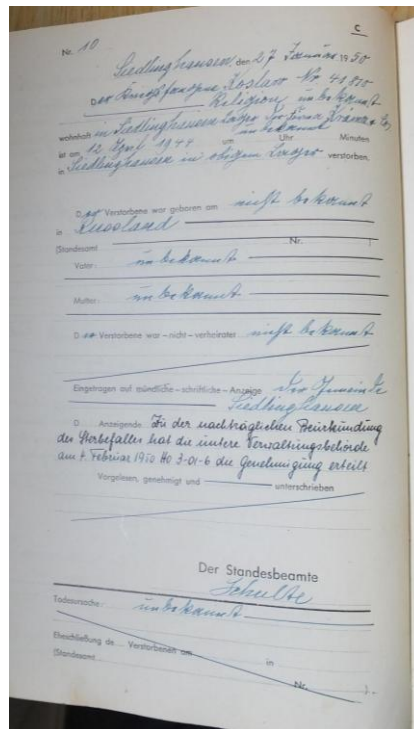 C
Nr. 10
Siedlinghausen, den 27 Januar 1950
Der Kriegsgefangene Koslow Nr 41800
Religion unbekannt
wohnhaft in Siedlinghausen Lager der Firma
unbekannt
ist am 12 April 1944 um Uhr Minuten
in Siedlinghausen in obigem Lager verstorben.
Der Verstorbene war geboren am nicht bekannt
in Russland
(Standesamt Nr. )
Vater: unbekannt
Mutter: unbekannt
Der Verstorbene war – nicht – verheiratet nicht bekannt
Eingetragen auf mündliche – schriftliche – Anzeige der Gemeinde
Siedlinghausen
D Anzeigende Zu der nachträglichen Beurkundung
des Sterbefalles hat die untere Verwaltungsbehörde
am 4. Februar 1950 Ho 3-01-6 die Genehmigung erteilt
Vorgelesen, genehmigt und unterschrieben
Der Standesbeamte
Schulte
Todesursache: unbekannt
Eheschließung de Verstorbenen am in
(Standesamt Nr. ).